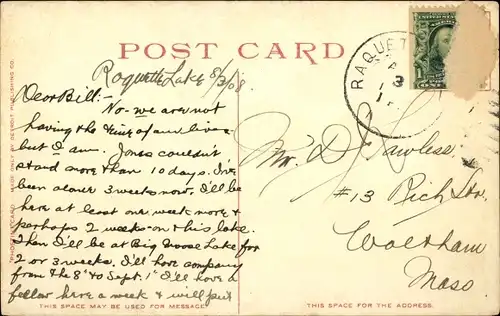 POST CARD
Raquette Lake 8/3/08
Dear Bill:-
No- we are not
having the time of our lives-
but I am. Jones couldn't
stand more than 10 days. I've
been alone 3 weeks now. I'll be
here at least one week more &
perhaps 2 weeks - on this lake.
Then I'll be at Big Moose Lake for
2 or 3 weeks. I'll have company
from the 8" to Sept. 1" I'll have a
fellow here a week & will put
THIS SPACE MAY BE USED FOR MESSAGE.
MADE ONLY BY DETROIT PUBLISHING CO.
RAQUET
3
Mr. D Lawless
#13 Rich Str.
Waltham
Mass
THIS SPACE FOR THE ADDRESS.